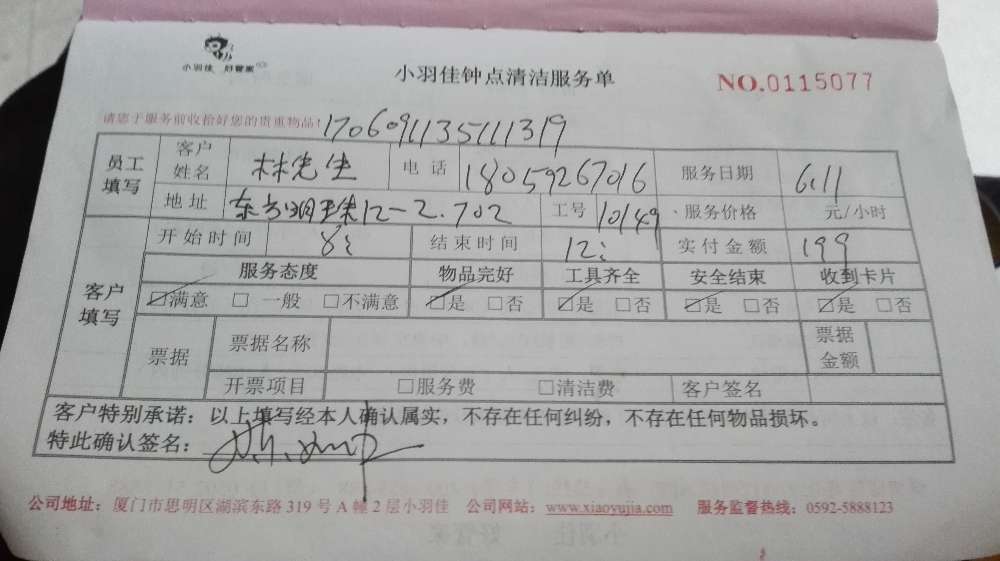 小羽佳 好管家
小羽佳钟点清洁服务单
NO.0115077
请您于服务前收拾好您的贵重物品!
170609113511319
员工填写 客户姓名 林先生 电话 18059267016 服务日期 6.11
地址 东方明珠12-2.702 工号 10149 服务价格 元/小时
客户填写 开始时间 8: 结束时间 12: 实付金额 199
服务态度 物品完好 工具齐全 安全结束 收到卡片
☑满意 □一般 □不满意 ☑是 □否 ☑是 □否 ☑是 □否 ☑是 □否
票据 票据名称 票据金额
开票项目 □服务费 □清洁费 客户签名
客户特别承诺：以上填写经本人确认属实，不存在任何纠纷，不存在任何物品损坏。
特此确认签名：
公司地址：厦门市思明区湖滨东路319号A幢2层小羽佳 公司网站：www.xiaoyujia.com 服务监督热线：0592-5888123